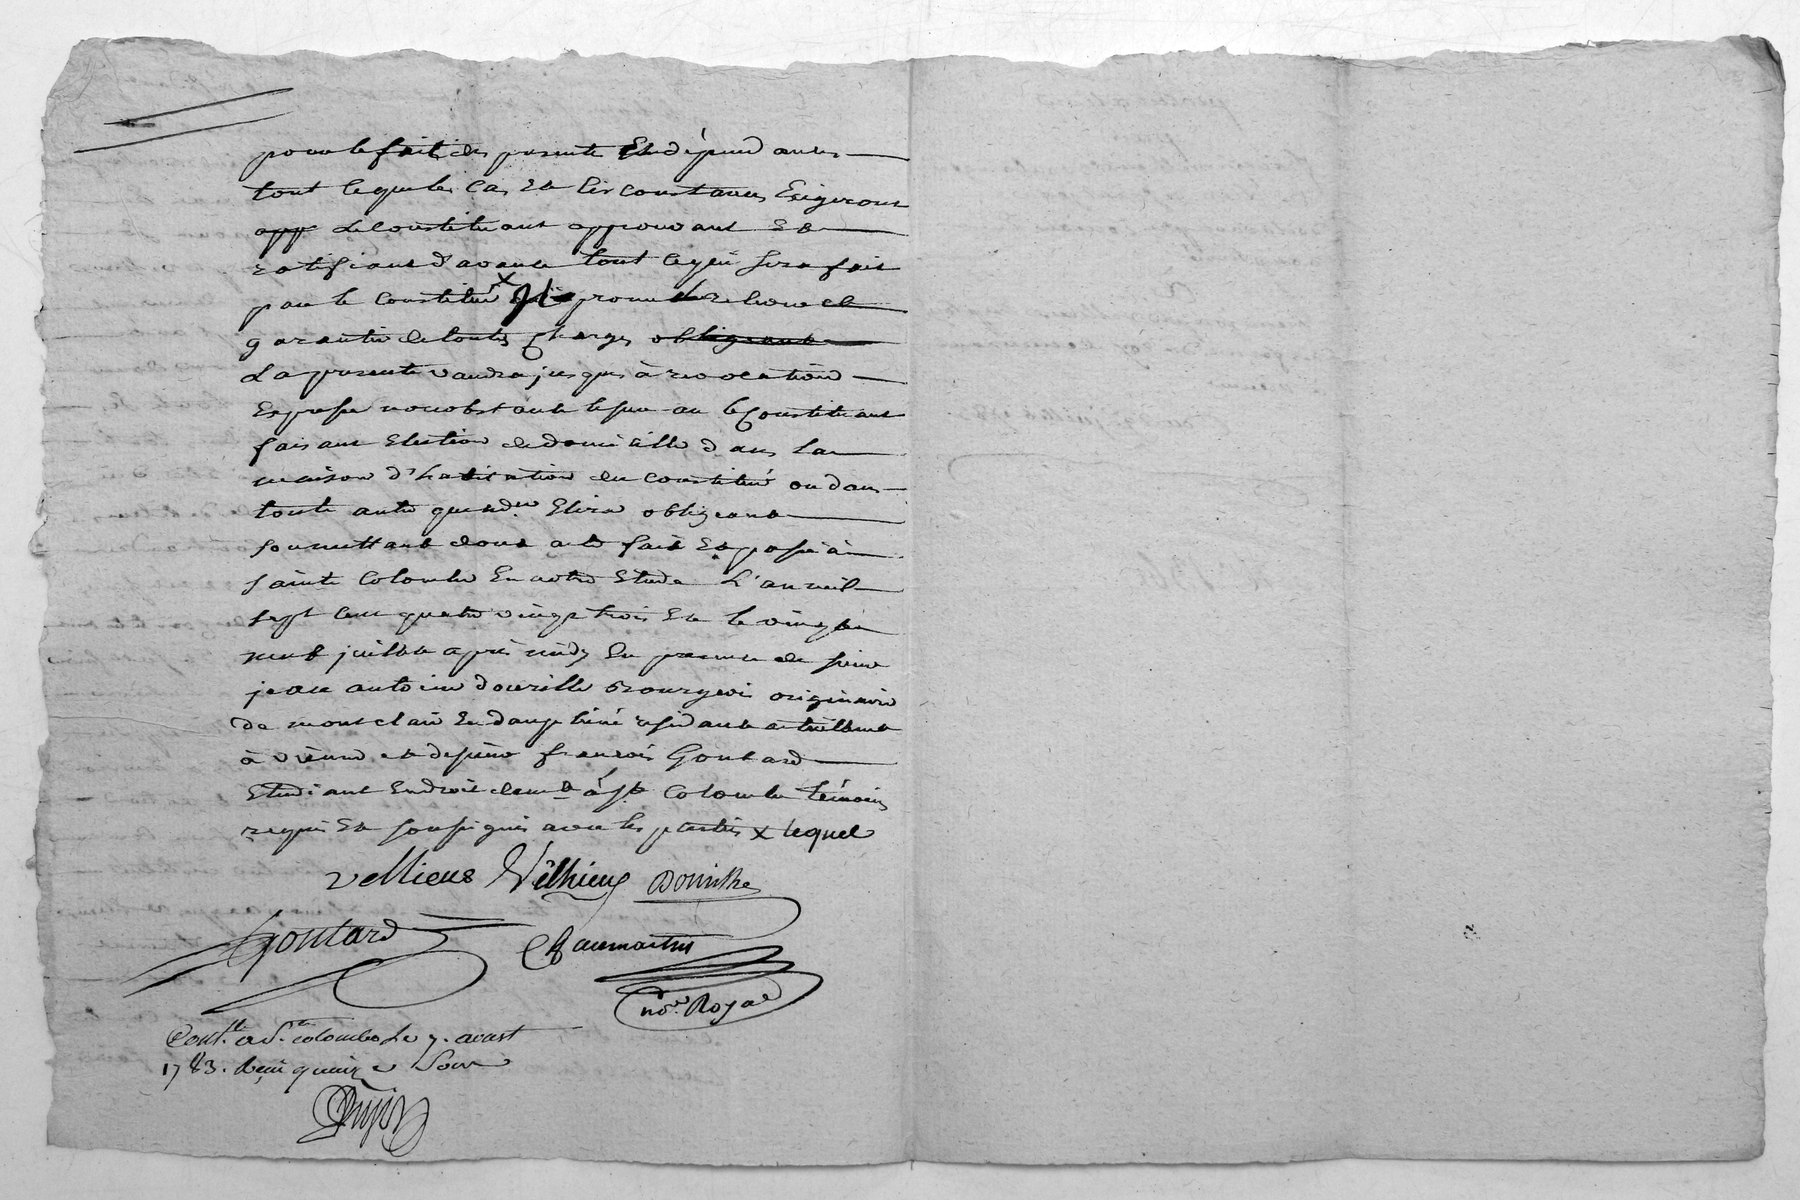 pour le fait des presente Et dépendances
tout ce que les cas Et les circonstances Exigeront
app Le Constituant approuvant Et
ratifiant d'avance tout ce qui sera fait
par le Constitué x promet relever et
garantir de toutes Charges obligeant
La presente vaudra jusques à revocation
Expresse nonobstant le Constituant
faisant Election de domicille dans la
maison d'habitation du Constitué ou dans
toute autre que Elira obligeant
soumettant dont acte fait Et passé à
Sainte Colombe En notre Etude L'an mil
sept cent quatre vingt trois Et le vingt
neuf juillet après midy En presence de sieur
jean antoine Bourgeois originaire
de montclair En dauphiné residant actuellement
à vienne et de sieur françois Goutard
Etudiant En droit dem.t à S.te Colombe témoins
requis Et soussignés avec les parties x lequel
Goutard
no.re Royal
Cont.lé à S.te colombe Le 7. aoust
1783. Reçu quinze sous